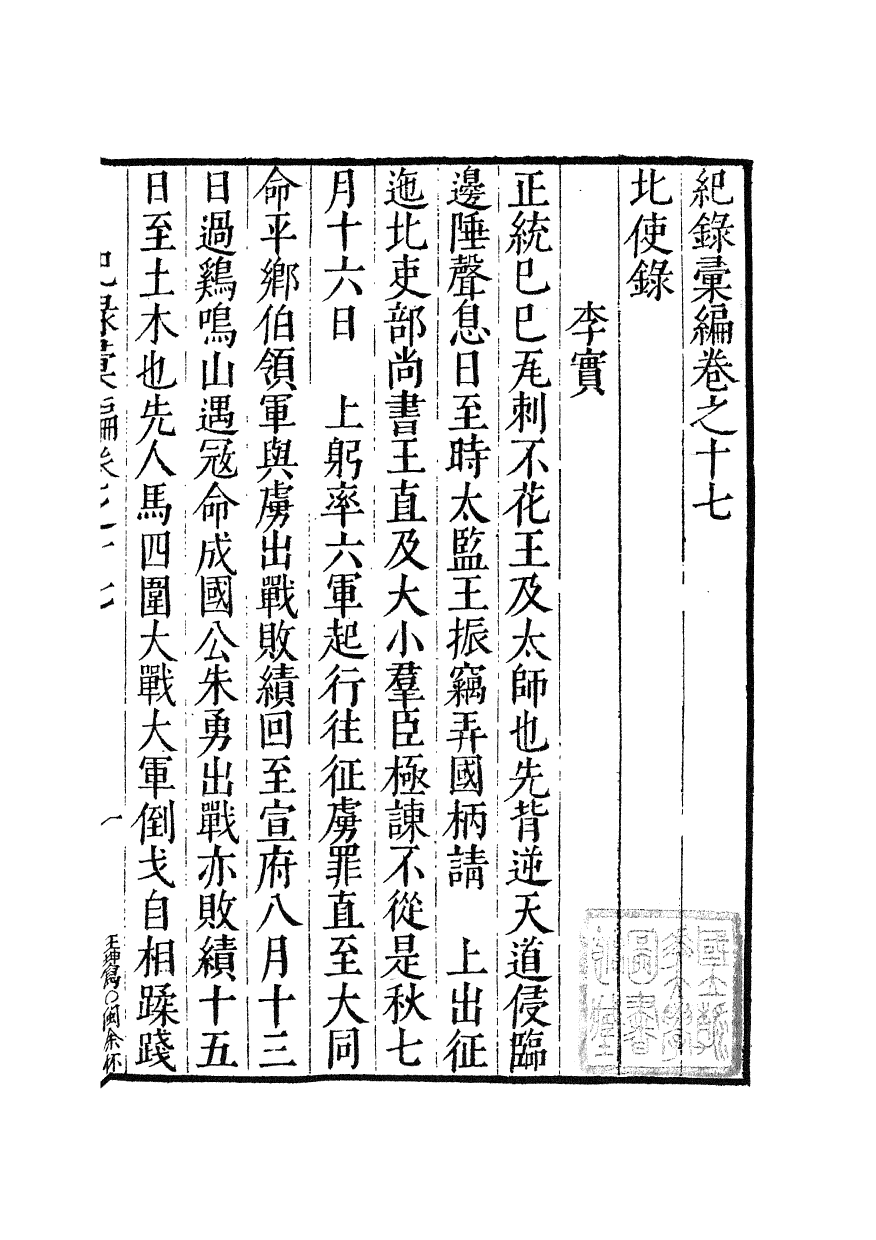 紀錄彙編卷之十七
北使錄
李實
正統己巳瓦剌不花王及太師也先背逆天道侵臨
邊陲聲息日至時太監王振竊弄國柄請　上出征
迤北吏部尚書王直及大小羣臣極諫不從是秋七
月十六日　上躬率六軍起行往征虜罪直至大同
命平鄉伯領軍與虜出戰敗績回至宣府八月十三
日過鷄鳴山遇寇命成國公朱勇出戰亦敗績十五
日至土木也先人馬四圍大戰大軍倒戈自相蹂踐
紀錄彙編卷之十七
一